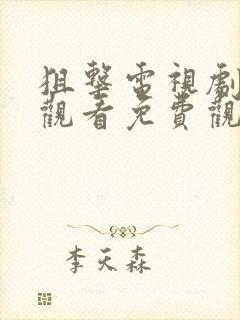 狙擊電視劇
觀看免費觀
李天森